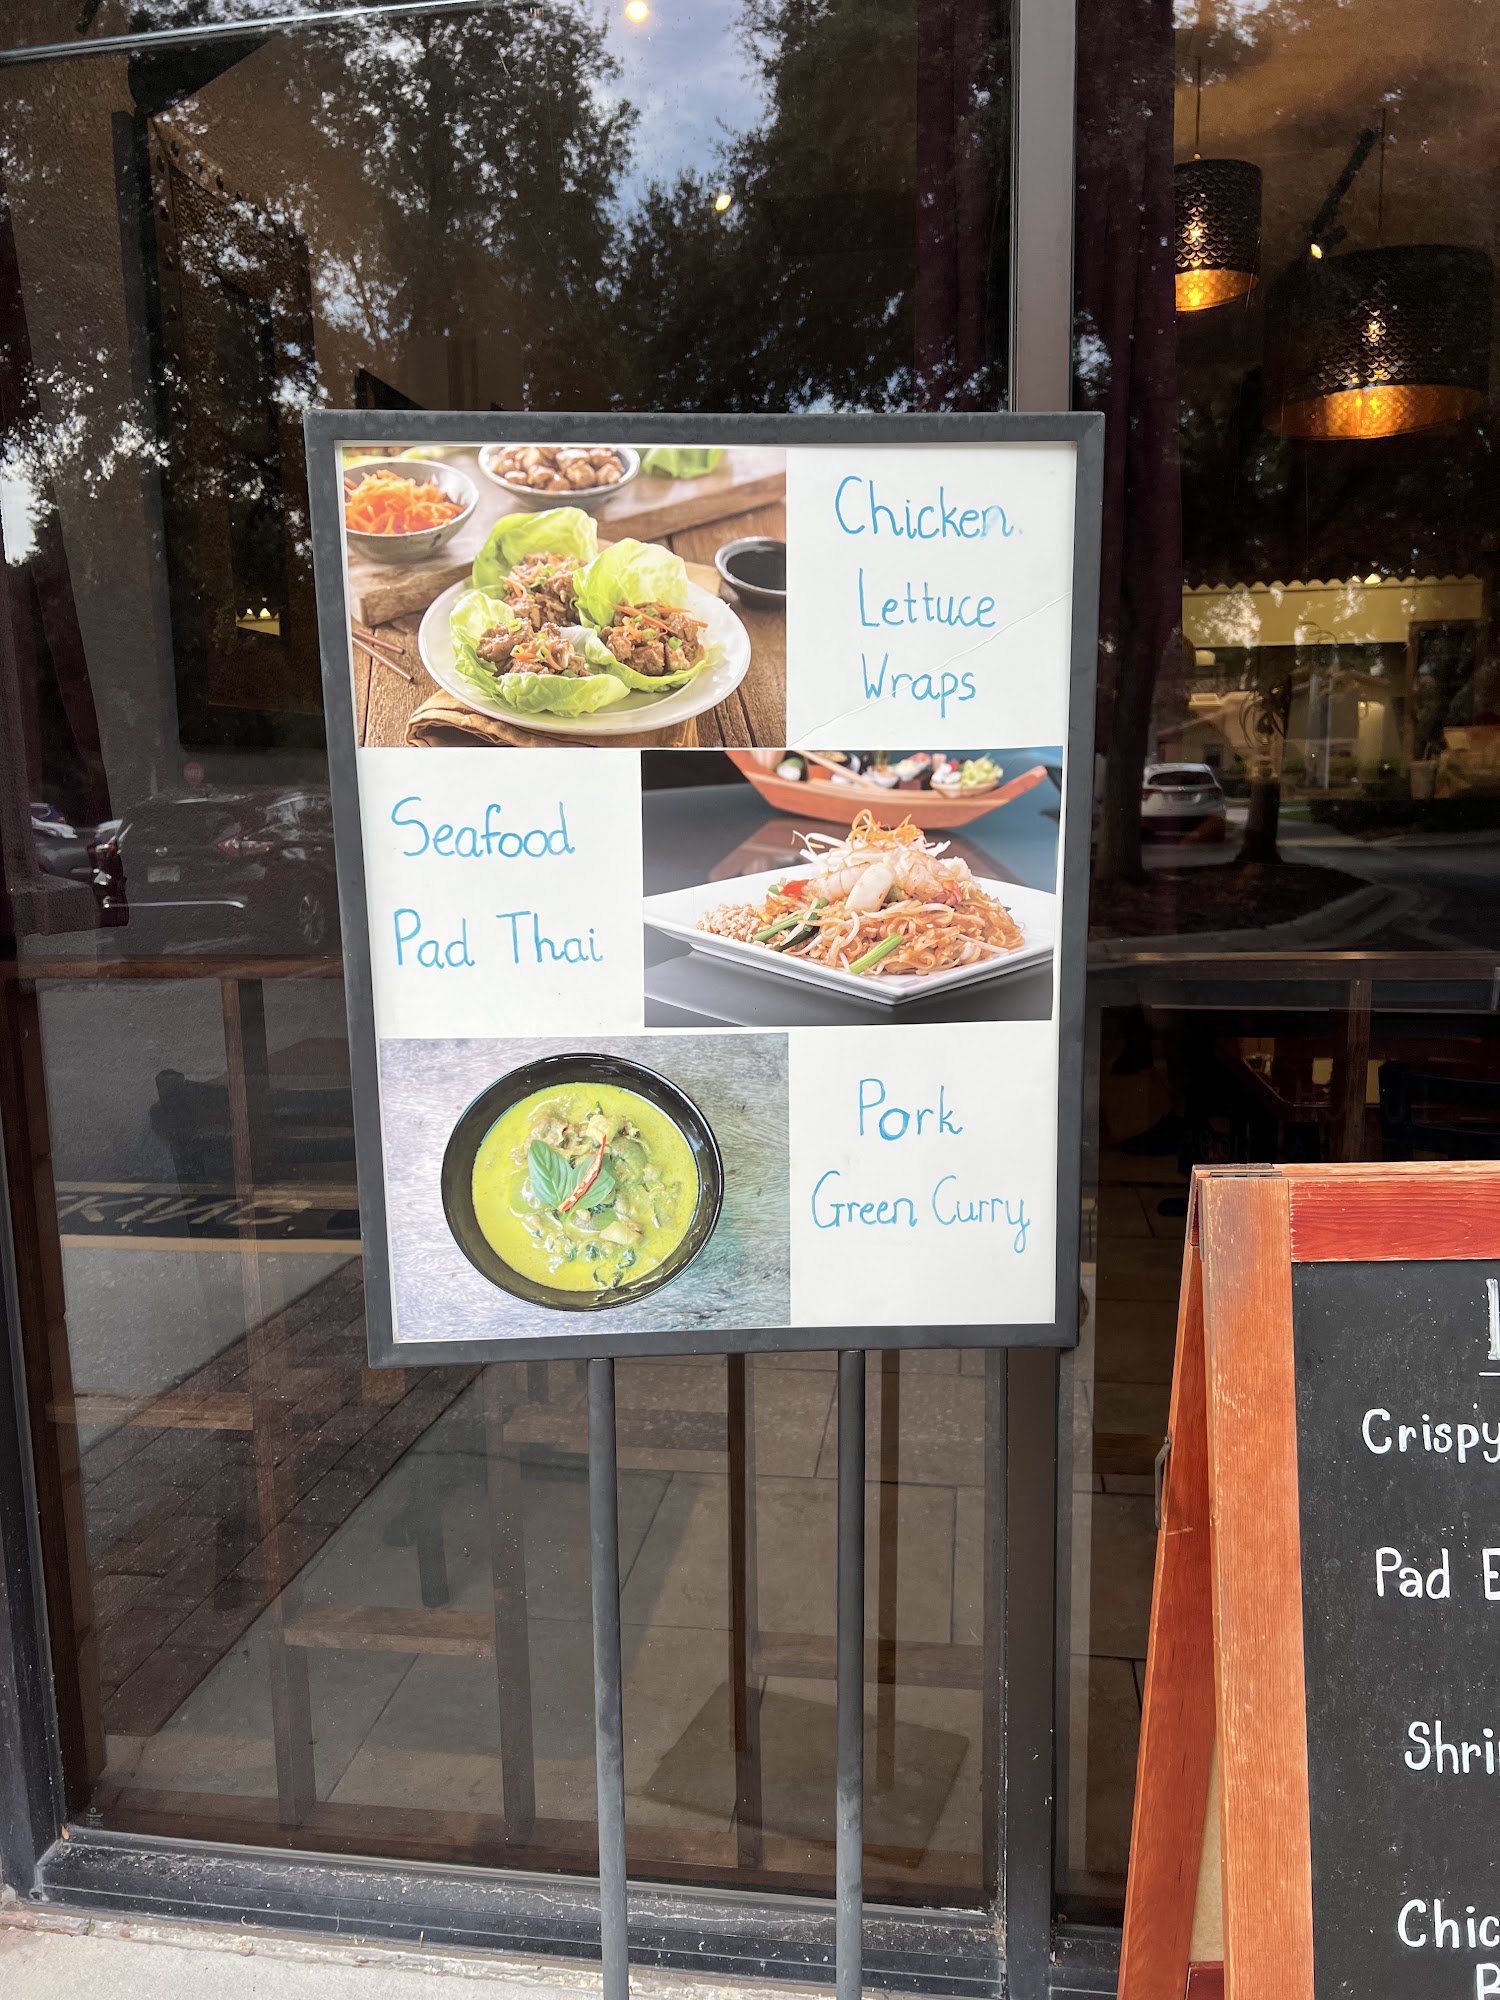 Chicken
Lettuce
Wraps
Seafood
Pad Thai
Pork
Green Curry
Crispy
Pad